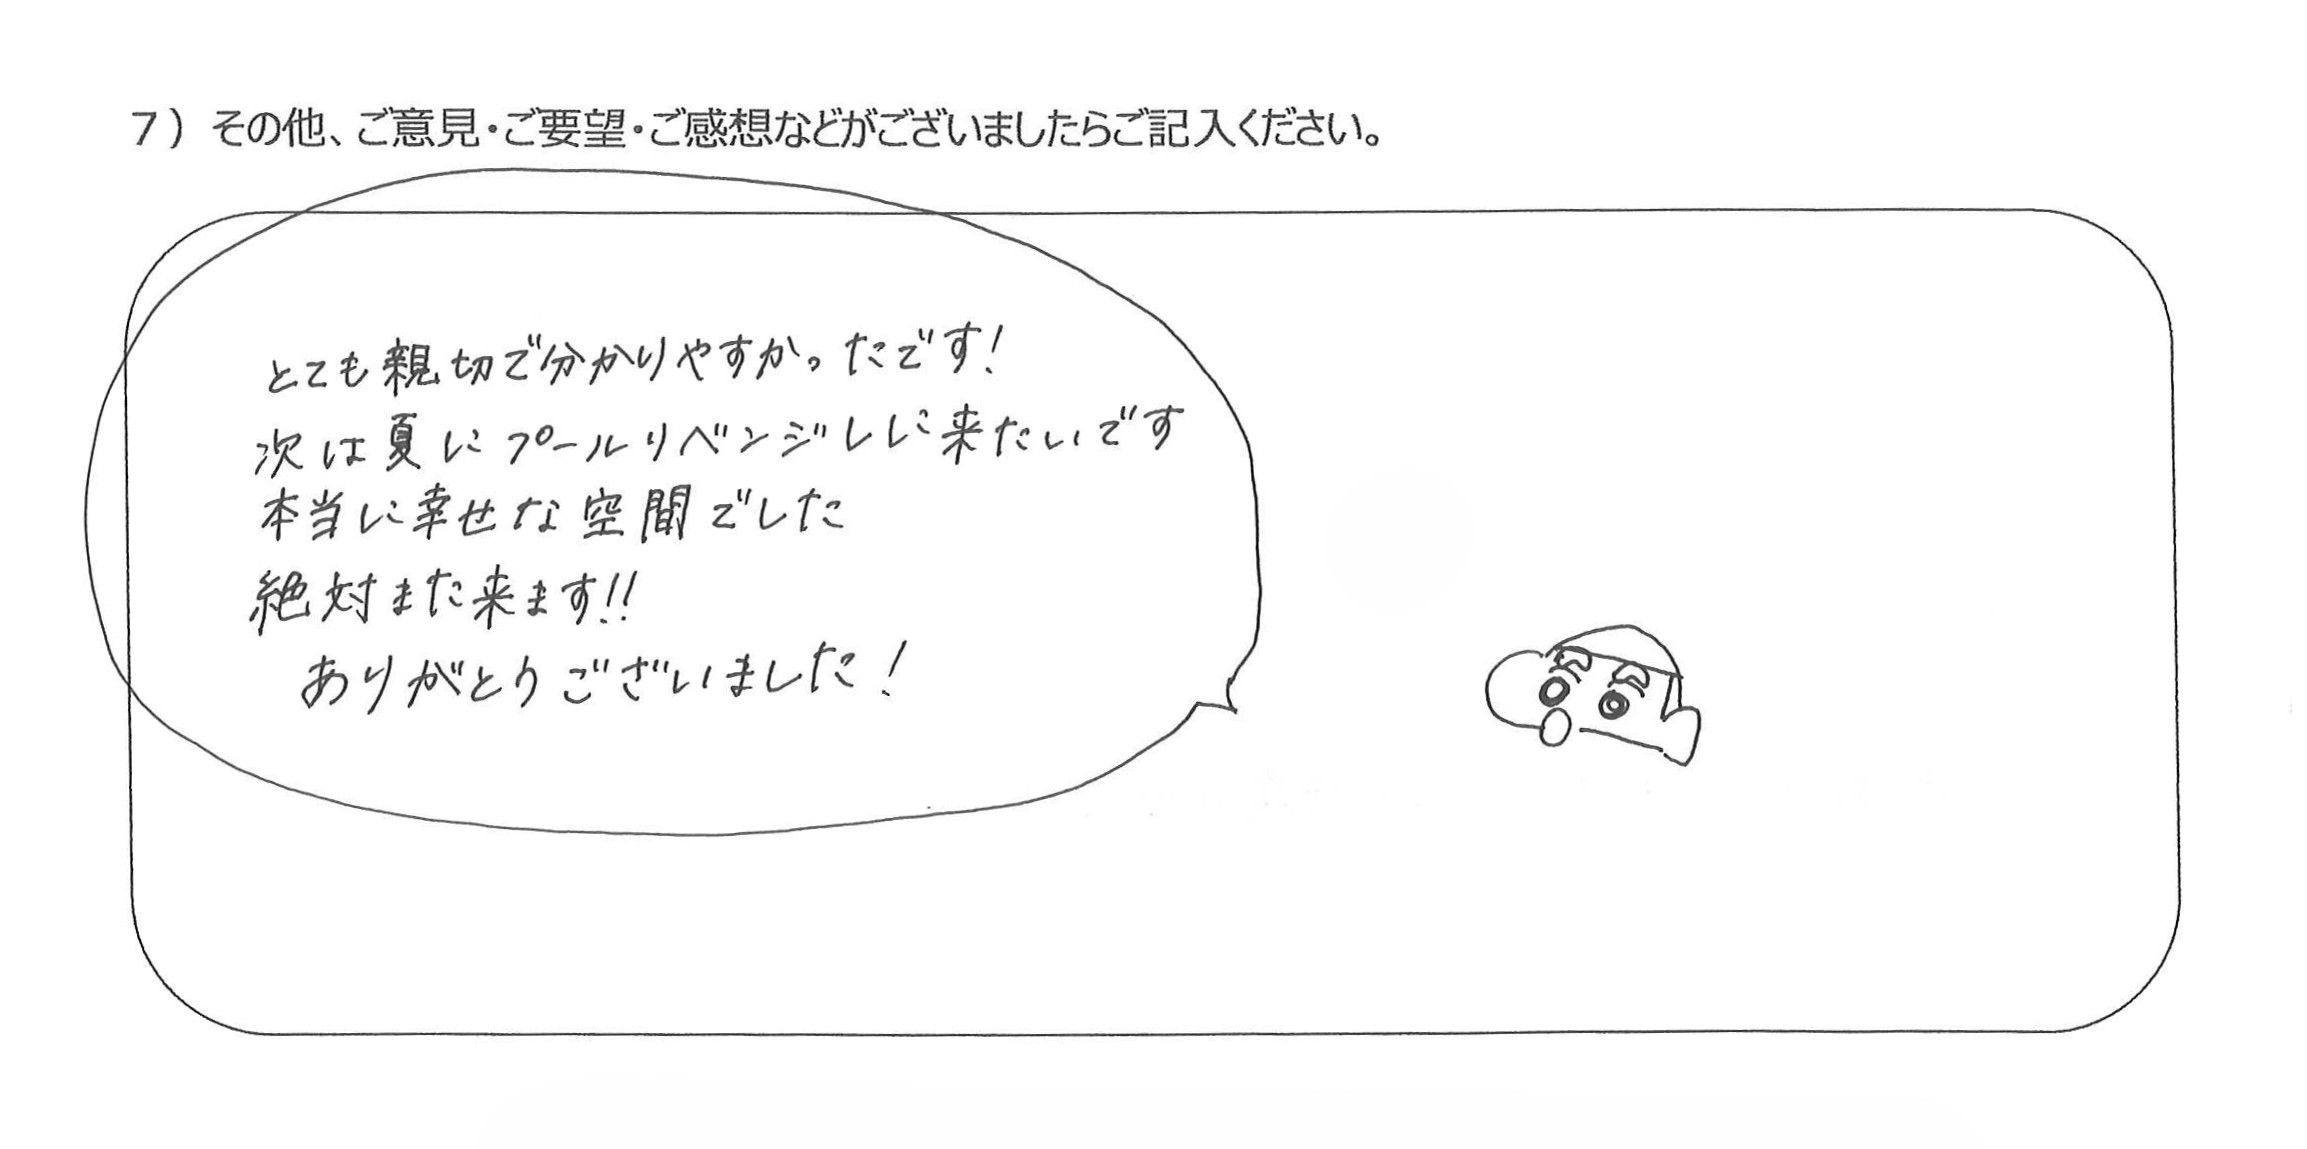 7）その他、ご意見・ご要望・ご感想などがございましたらご記入ください。
とても親切で分かりやすかったです！
次は夏にプールリベンジしに来たいです
本当に幸せな空間でした
絶対また来ます!!
ありがとうございました！